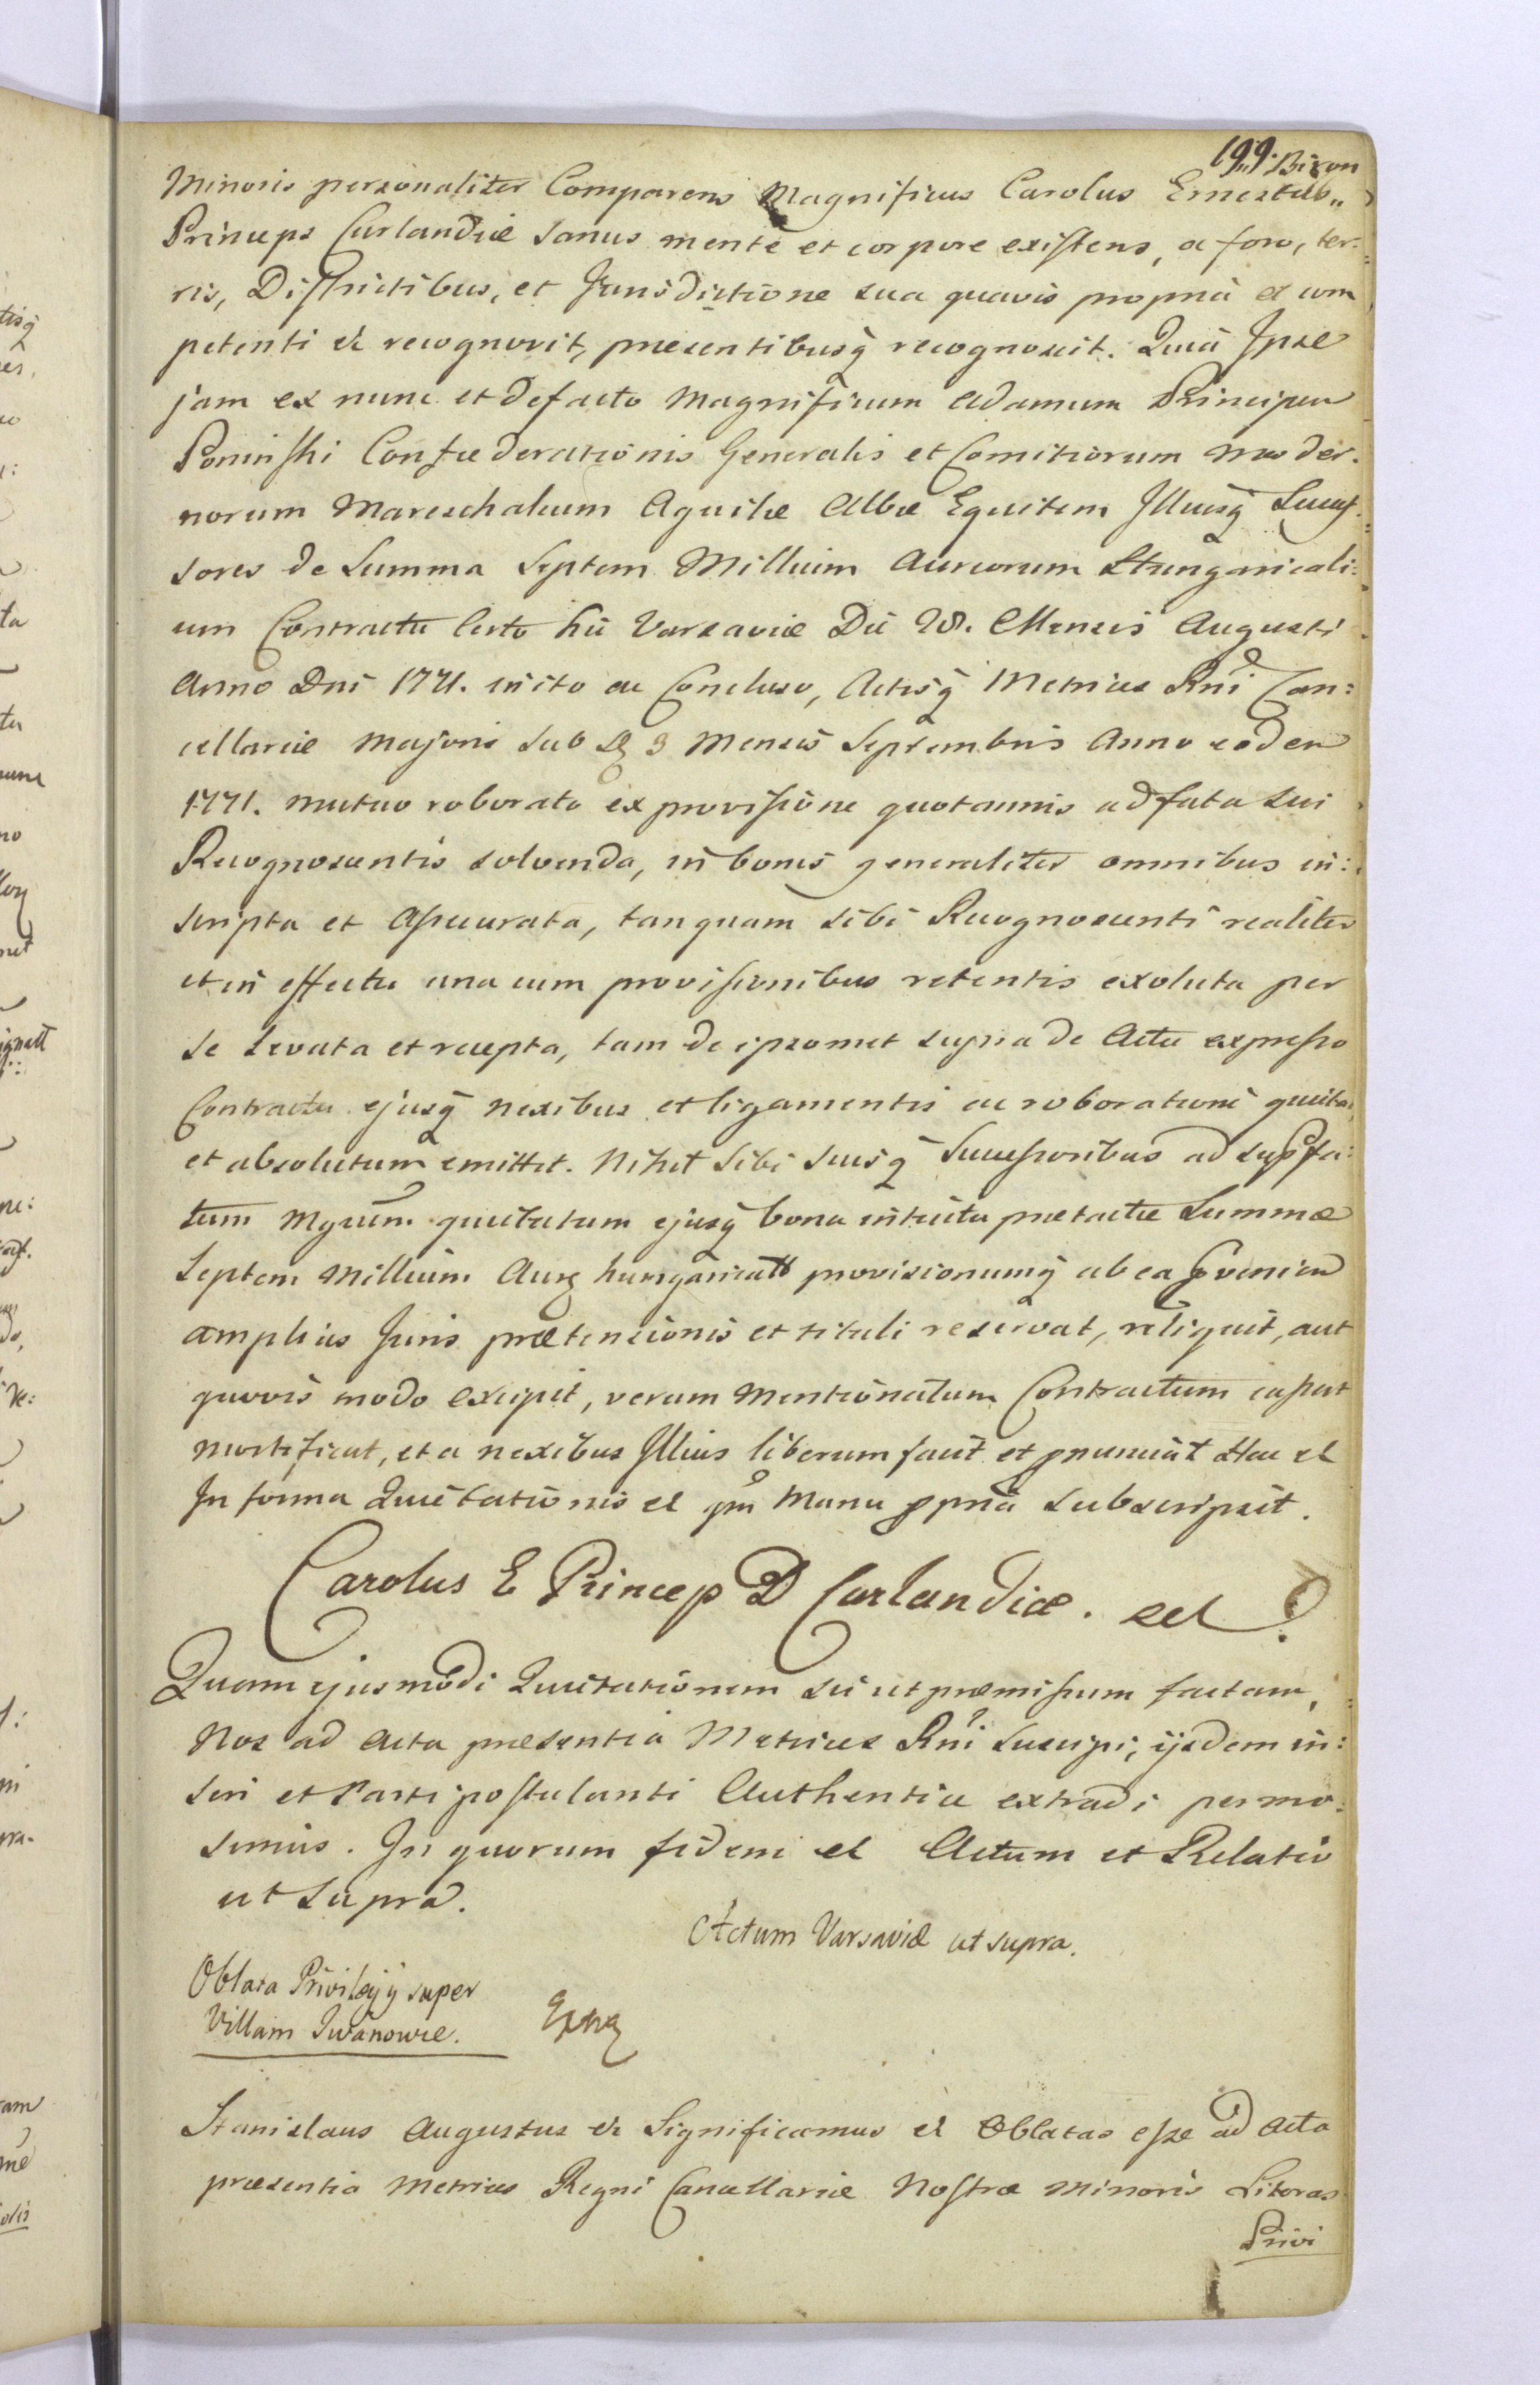 199. Biron
Minoris personaliter Comparens Magnificus Carolus Ernestus„
Princeps Curlandiæ sanus mente et corpore existens, a foro, ter:
ris, Districtibus, et Jurisdictione sua quavis propria et com
petenti &c recognovit, præsentibusq recognoscit. Quia Ipse
jam ex nunc et defacto Magnificum Adamum Principem
Poninski Confæderationis Generalis et Comitiorum moder:
norum Mareschalcum Aquilæ Albæ Equitem Illiusq Succes:
sores de Summa Septem Millium Aureorum Hungaricali:
um Contractu Certo hic Varsaviæ Die 28. Mensis Augusti
Anno Dni 1771. inito ac Concluso, Actisq Metrices Rni Can:
cellariæ Majoris sub 3 Mensis Septembris Anno eodem
1771. mutuo roborato ex provisione quotannis ad fata sui
Recognoscentis solvenda, in bonis generaliter omnibus in:
scripta et Assecurata, tanquam sibi Recognoscenti realiter
et in effectu una cum provisionibus retentis exoluta per
se levata et recepta, tam de ipsomet supra de Actu expresso
Contractu ejusq nexibus et ligamentis ac roboratione quita
et absolutum emittet. Nihil sibi suisq Successoribus ad supfa:
tum Mgcum quietatum ejusq bona intuitu prætactæ Summæ
Septem Millium Aur hungarical provisionumq ab ea pveniend
amplius Juris prætensionis et tituli reservat, reliquit, aut
quovis modo excipit, verum Mentionatum Contractum cassat
mortificat, et a nexibus Illius liberum facit et pnunciat Hac et
In forma Quietationis et Manu ppria subscripsit.
Carolus E Princep D Curlandiæ.
Quam ejusmodi Quietationem sic ut præmissum factam,
Nos ad Acta præsentia Metrices Rni suscipi, ijsdem in:
seri et Parti postulanti Authentice extradi permi:
simus. In quorum fidem et Actum et Relatio
ut Supra.
Actum Varsaviæ ut supra.
Oblata Privilegij super
Villam Iwanowce.
Stanislaus Augustus &c Significamus et Oblatas esse ad Acta
præsentia Metrices Regni Cancellariæ Nostræ Minoris Literas
Privi